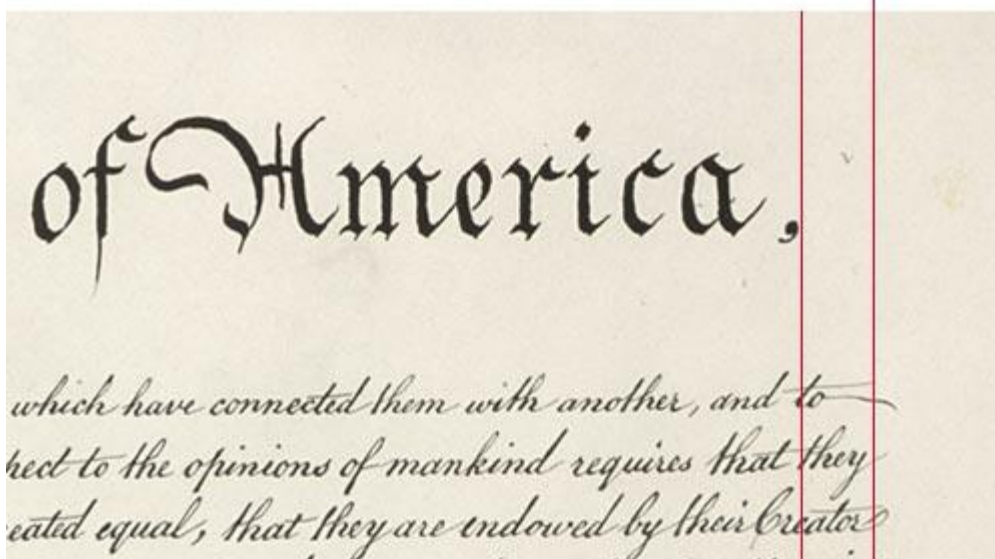 of America,
which have connected them with another, and to
pect to the opinions of mankind requires that they
eated equal, that they are endowed by their Creator